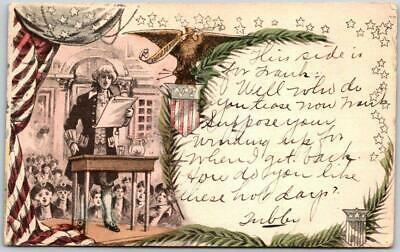 This side is
for Frank.
Well who do
you tease now Frank
Suppose your
winding up for
when I get back.
How do you like
these hot days?
Tubby